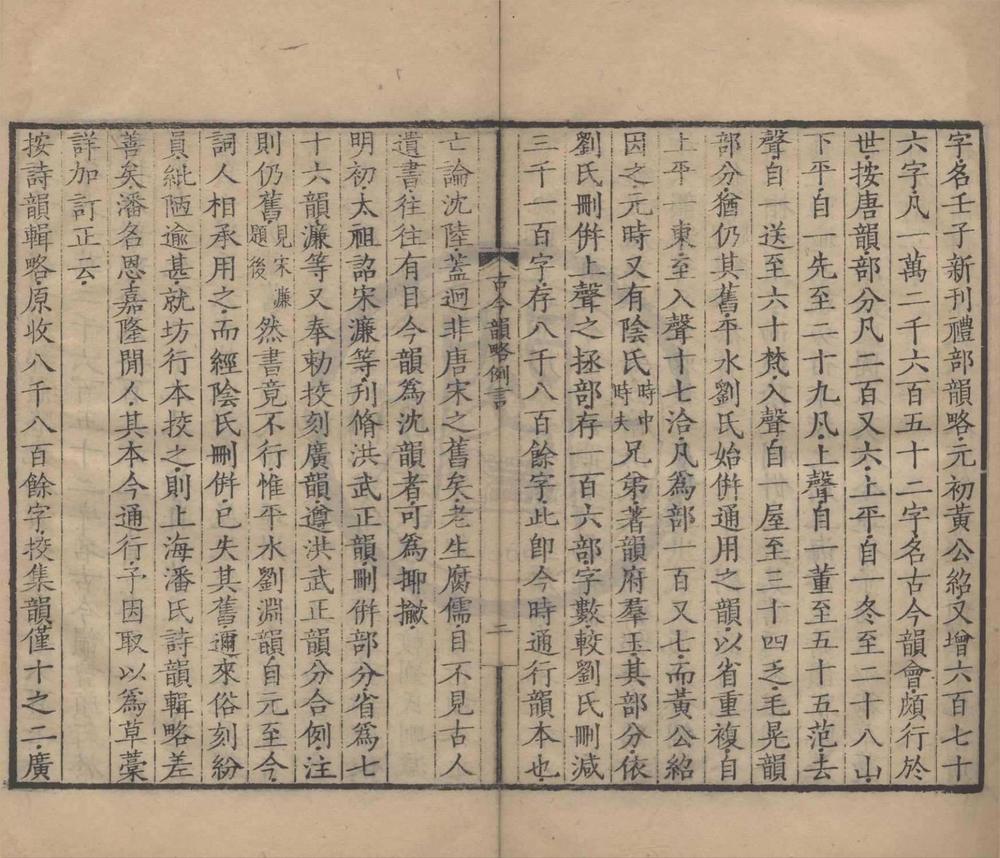 字名壬子新刊禮部韻略元初黃公紹又增六百七十
六字凡一萬二千六百五十二字名古今韻會頗行於
世按唐韻部分凡二百又六上平自一冬至二十八山
下平自一先至二十九凡上聲自一董至五十五范去
聲自一送至六十梵入聲自一屋至三十四乏毛晃韻
部分猶仍其舊平水劉氏始併通用之韻以省重複自
上平一東至入聲十七洽凡為部一百又七而黃公紹
因之元時又有陰氏時中時夫兄弟著韻府羣玉其部分依
劉氏刪併上聲之拯部存一百六部字數較劉氏刪減
三千一百字存八千八百餘字此卽今時通行韻本也
古今韻略例言
二
亡論沈陸蓋迥非唐宋之舊矣老生腐儒目不見古人
遺書往往有目今韻為沈韻者可為揶揄
明初太祖詔宋濂等刋脩洪武正韻刪併部分省為七
十六韻濂等又奉勅挍刻廣韻遵洪武正韻分合例注
則仍舊見宋濂題後然書竟不行惟平水劉淵韻自元至今
詞人相承用之而經陰氏刪併已失其舊邇來俗刻紛
員紕陋逾甚就坊行本挍之則上海潘氏詩韻輯略差
善矣潘名恩嘉隆閒人其本今通行予因取以為草藁
詳加訂正云
按詩韻輯略原收八千八百餘字挍集韻僅十之二廣